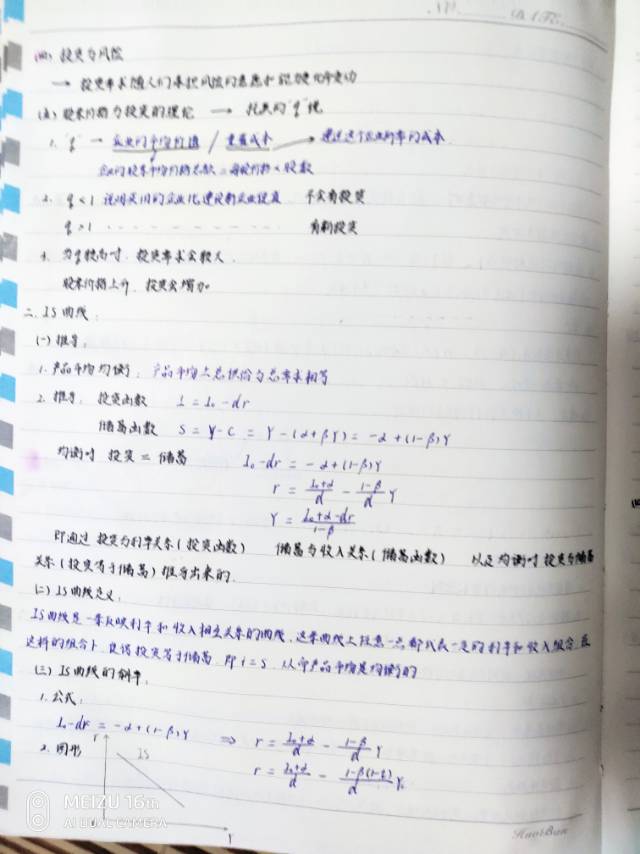 No. Date.
(四) 投资与风险
→ 投资需求随人们承担风险的意愿和能力变化而变动
(五) 股票价格与投资的理论 → 托宾的"q"说
1. "q" → 企业的市场价值 / 重置成本 → 建造这个企业所需的成本
企业的股票市场价格总额 = 每股价格 × 股数
2. q<1 说明买旧的企业比建设新企业便宜 不会有投资
q>1 - - - - - - - 有新投资
4. 当q较高时, 投资需求会较大.
股票价格上升, 投资会增加
二. IS曲线:
(一) 推导:
1. 产品市场均衡: 产品市场上总供给与总需求相等
2. 推导: 投资函数 I = I₀ - dr
储蓄函数 S = Y - C = Y - (α + βY) = -α + (1-β)Y
均衡时 投资 = 储蓄 I₀ - dr = -α + (1-β)Y
r = (I₀+α)/d - (1-β)/d Y
Y = (I₀+α-dr)/(1-β)
即通过 投资与利率关系(投资函数) 储蓄与收入关系(储蓄函数) 以及均衡时 投资与储蓄
关系(投资等于储蓄) 推导出来的.
(二) IS曲线定义:
IS曲线是一条反映利率和收入相互关系的曲线, 这条曲线上任意一点都代表一定的利率和收入组合, 在
这样的组合下, 投资等于储蓄, 即 i = s, 从而产品市场是均衡的
(三) IS曲线的斜率:
1. 公式:
I₀ - dr = -α + (1-β)Y ⇒ r = (I₀+α)/d - (1-β)/d Y
2. 图形 r IS Y
r = (I₀+α)/d - (1-β(1-t))/d Y
MEIZU 16th
AI DUAL CAMERA
HuoiBan